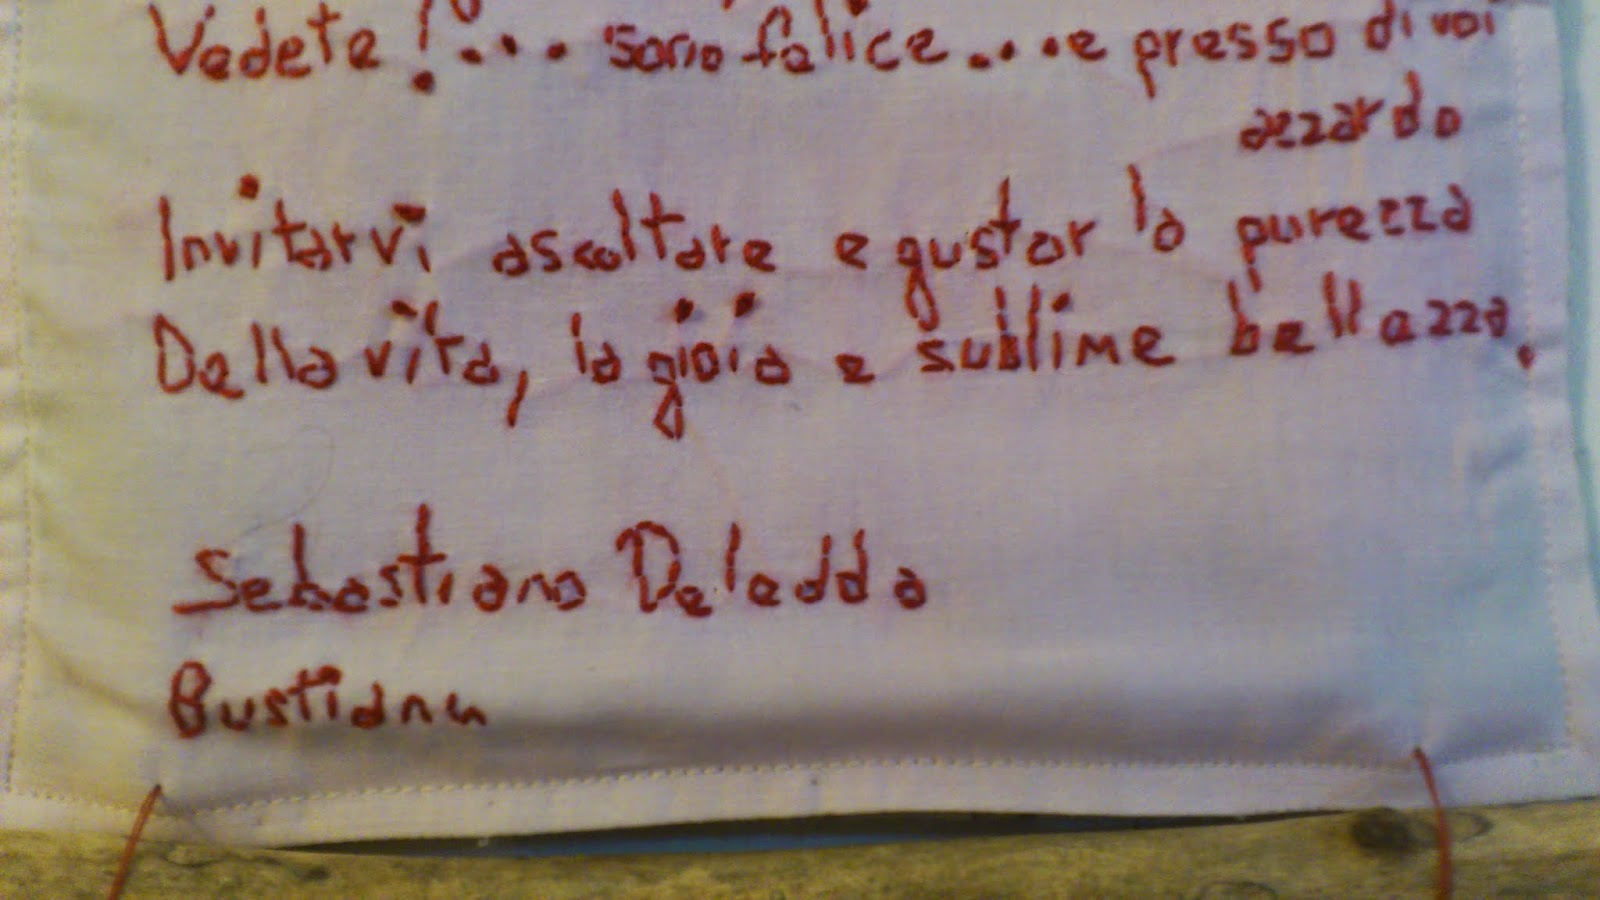 Vedete !... sono felice....e presso di voi
azzardo
Invitarvi ascoltare e gustar la purezza
Della vita, la gioia e sublime bellezza.
Sebastiano Deledda
Bustianu